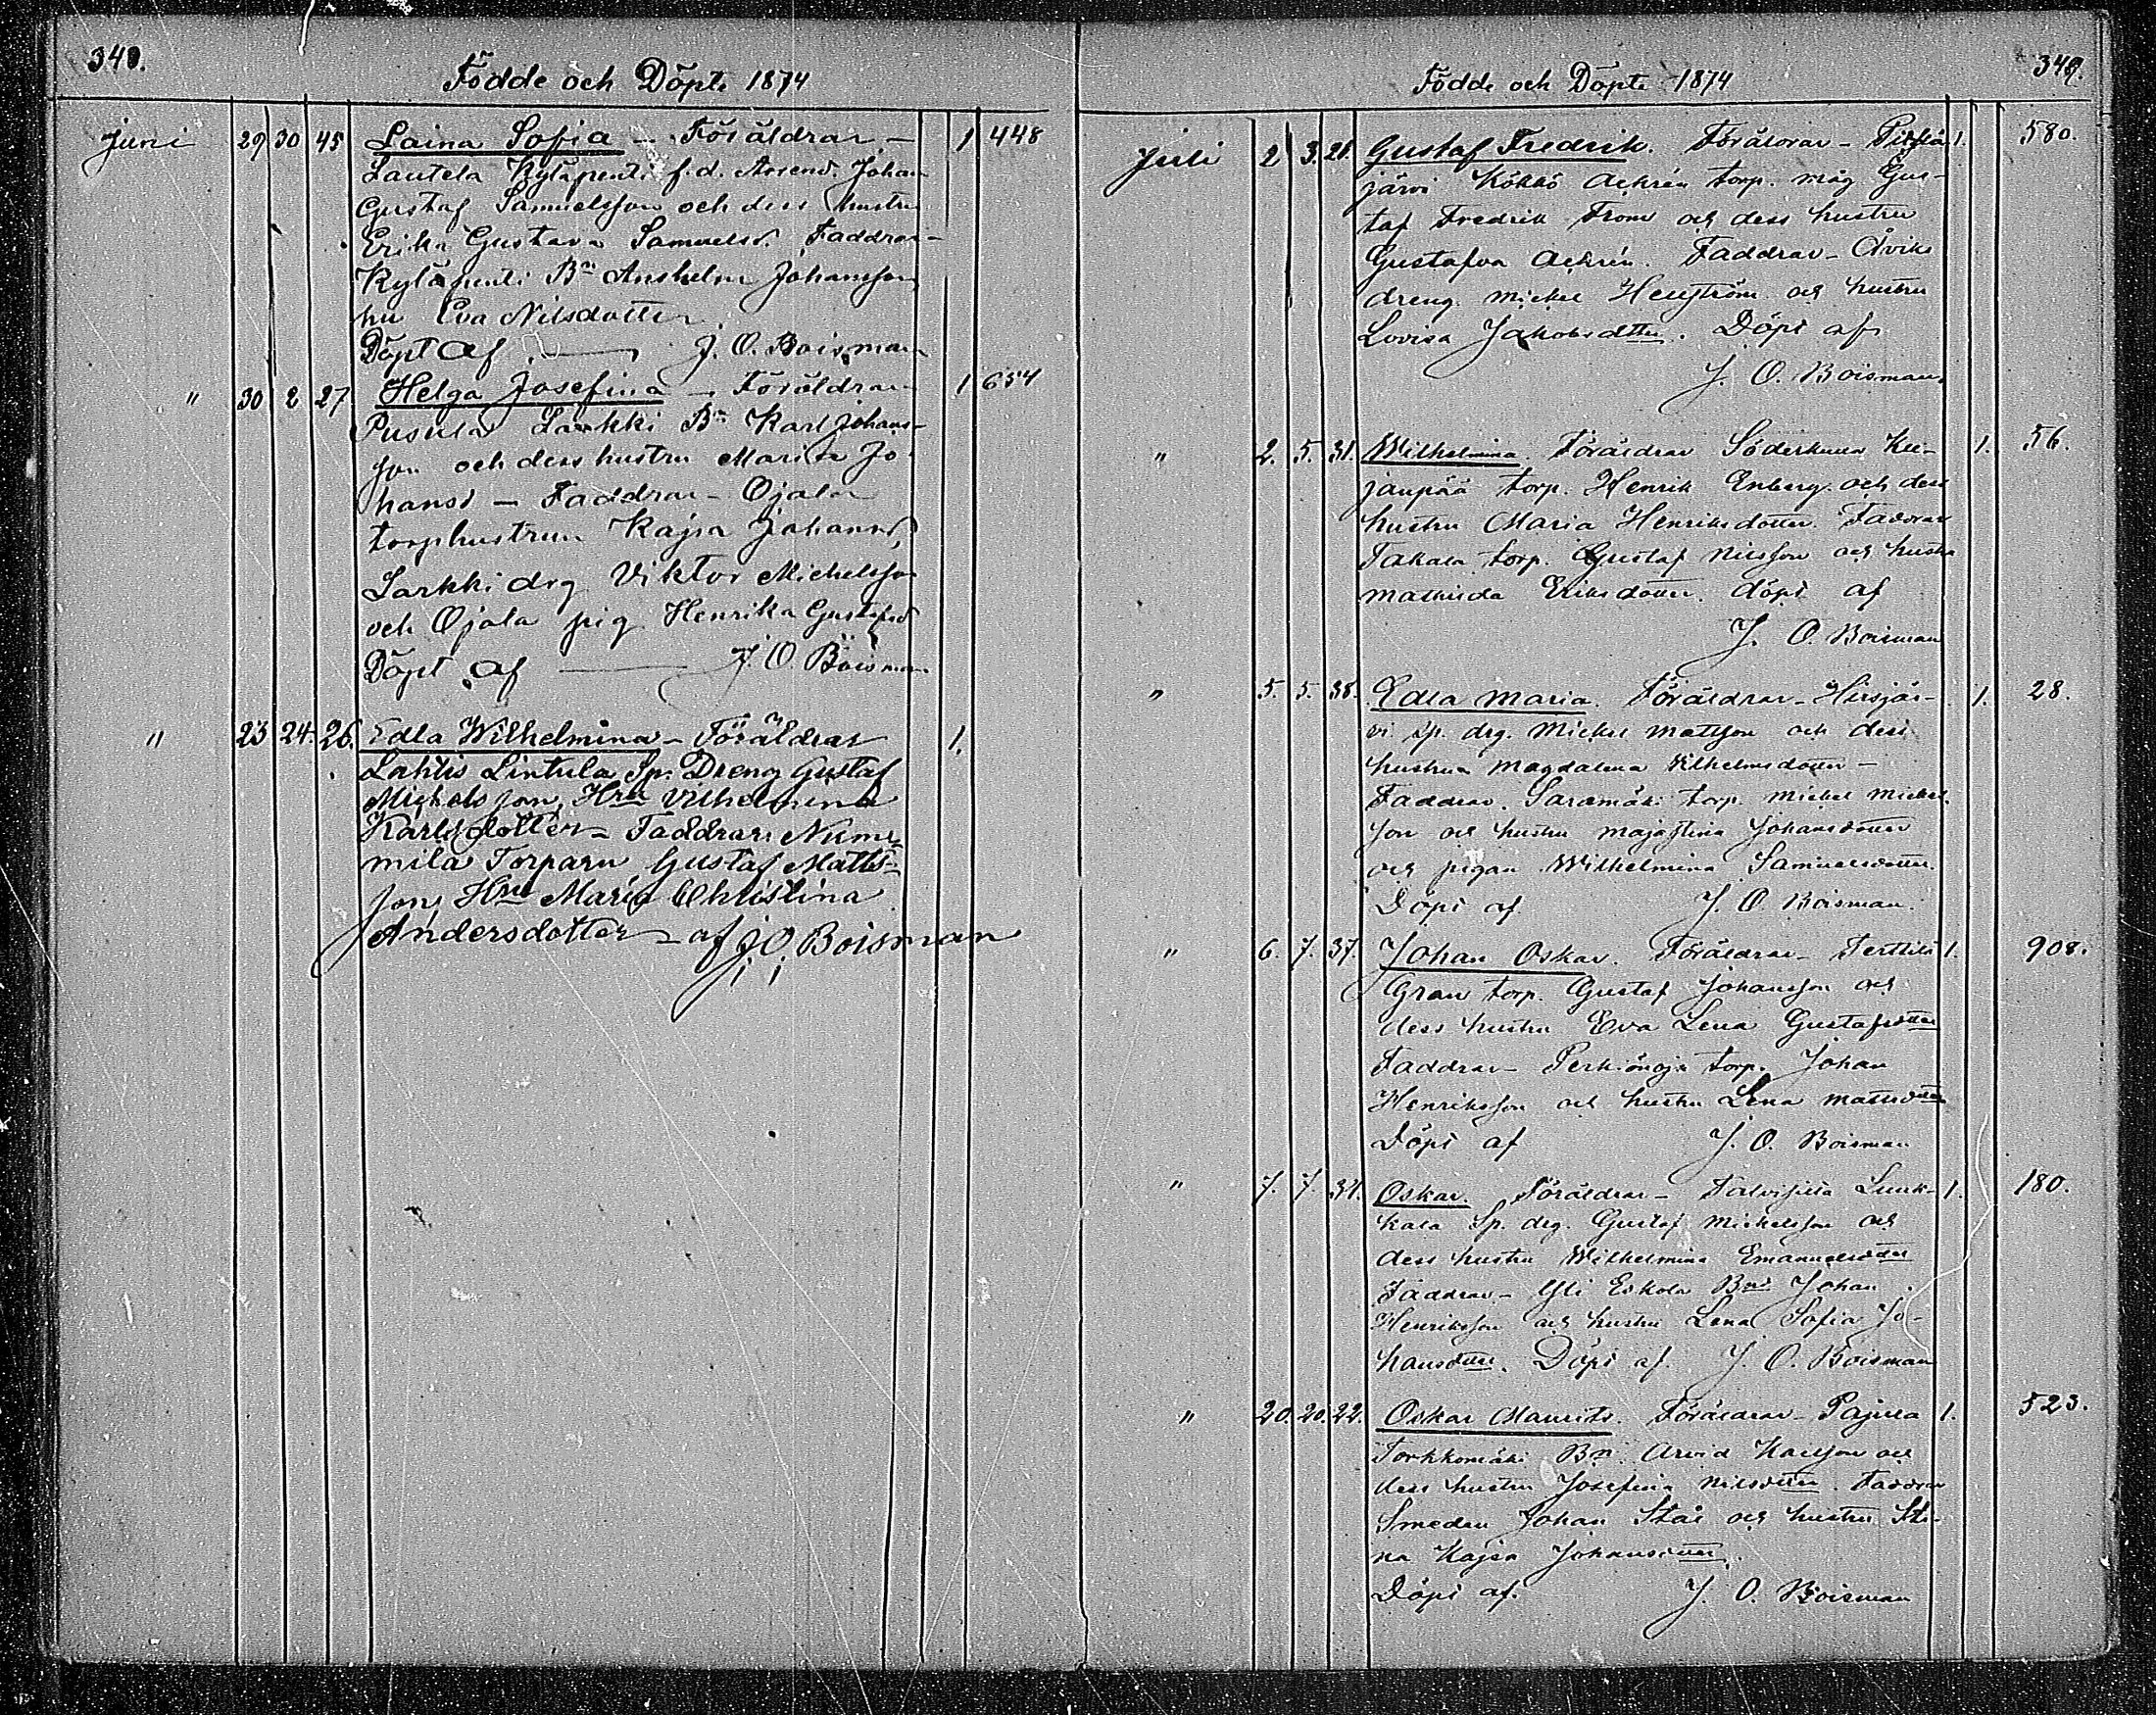 340.
Födde och Döpte 1874
Juni 29 30 45 Laina Sofia – Föräldrar – 1 448
Lautela Kyläpenti f.d. Arrend. Johan
Gustaf Samuelsson och dess hustru
Erika Gustava Samuelsd. Faddrar –
Kyläpenti Bn Anshelm Johansson
hu Eva Nilsdotter
Döpt af — J. O. Boisman
" 30 2 27 Helga Josefina – Föräldrar 1 654
Pusula Larkki Bn Karl Johans-
son och dess hustru Maria Jo-
hansd – Faddrar – Ojala
torphustrun Kajsa Johansd,
Larkki drg Viktor Michelsson
och Ojala pig Henrika Gustafsd
Döpt af — J. O. Boisman
" 23 24. 26. Edla Wilhelmina – Föräldrar 1.
Lahtis Lintula Sp. Dreng Gustaf
Michelsson, Hru Vilhelmina
Karlsdotter – Faddrar: Numm-
mila Torparn Gustaf Matts-
son, Hru Maria Christina
Andersdotter – af J. O. Boisman
349.
Födde och Döpte 1874
Juli 2 3. 21. Gustaf Fredrik. Föräldrar – 1. 580.
järvi Köhkö Ackrén torp. måg Gus-
taf Fredrik From och dess hustru
Gustafva Ackrén. Faddrar – Åviks
dreng Mickel Hengström och hustru
Lovisa Jakobsdtter. Döpt af
J. O. Boisman.
" 2. 5. 31. Wilhelmina. Föräldrar Söderkulla
torp. Henrik Enberg och dess 1. 56.
hustru Maria Henriksdotter. Faddrar
Takala torp. Gustaf Nilsson och hustru
Mathilda Eriksdotter. döpt af
J. O. Boisman
" 5. 5. 38. Edla Maria. Föräldrar – Hirsjär- 1. 28.
vi sp. drg. Mickel Mattson och dess
hustru Magdalena Vilhelmsdotter –
Faddrar. Saramäki torp. Mickel Mickel-
son och hustru Majastina Johansdotter
och pigan Wilhelmina Samuelsdotter.
Döpt af J. O. Boisman.
" 6. 7. 37. Johan Oskar. Föräldrar – Terttilä 1. 908.
Gran torp. Gustaf Johansson och
dess hustru Eva Lena Gustafsdotter
Faddrar – Perkiönoja torp. Johan
Henriksson och hustru Lena Mattsdotter
Döpt af J. O. Boisman
" 7. 7. 34. Oskar. Föräldrar – Talvisilta Luuk- 1. 180.
kala Sp. drg. Gustaf Mickelsson och
dess hustru Wilhelmina Emanuelsdotter
Faddrar – Yli Eskola Bn Johan
Henriksson och hustru Lena Sofia Jo-
hansdtter. Döpt af. J. O. Boisman
" 20. 20. 22. Oskar Maurits. Föräldrar – Pajula 1. 523.
Torkkomäki Bn Arvid Karlsson och
dess hustru Josefina Nilsdotter. Faddrar
Smeden Johan Stål och hustru Sti-
na Kajsa Johansdotter.
Döpt af. J. O. Boisman